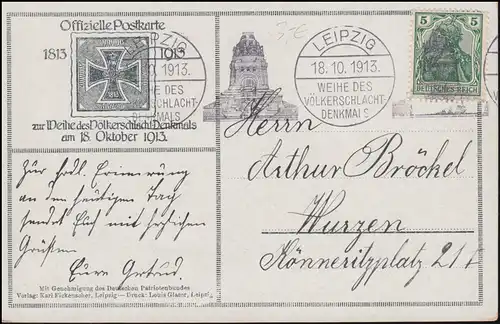 Offizielle Postkarte
1813 1913
zur Weihe des Völkerschlacht-Denkmals
am 18. Oktober 1913.
LEIPZIG
10.1913.
WEIHE DES
VÖLKERSCHLACHT-
DENKMALS
LEIPZIG
18.10.1913.
WEIHE DES
VÖLKERSCHLACHT-
DENKMALS
5 5
DEUTSCHES REICH
3€
Herrn
Arthur Bröckel
Wurzen
Könneritzplatz 21
Zur frdl. Erinnerung
an den heutigen Tag
sendet Euch mit herzlichen
Grüßen
Eure Gertrud.
Mit Genehmigung des Deutschen Patriotenbundes
Verlag: Karl Fickenscher, Leipzig — Druck: Louis Glaser, Leipzig.